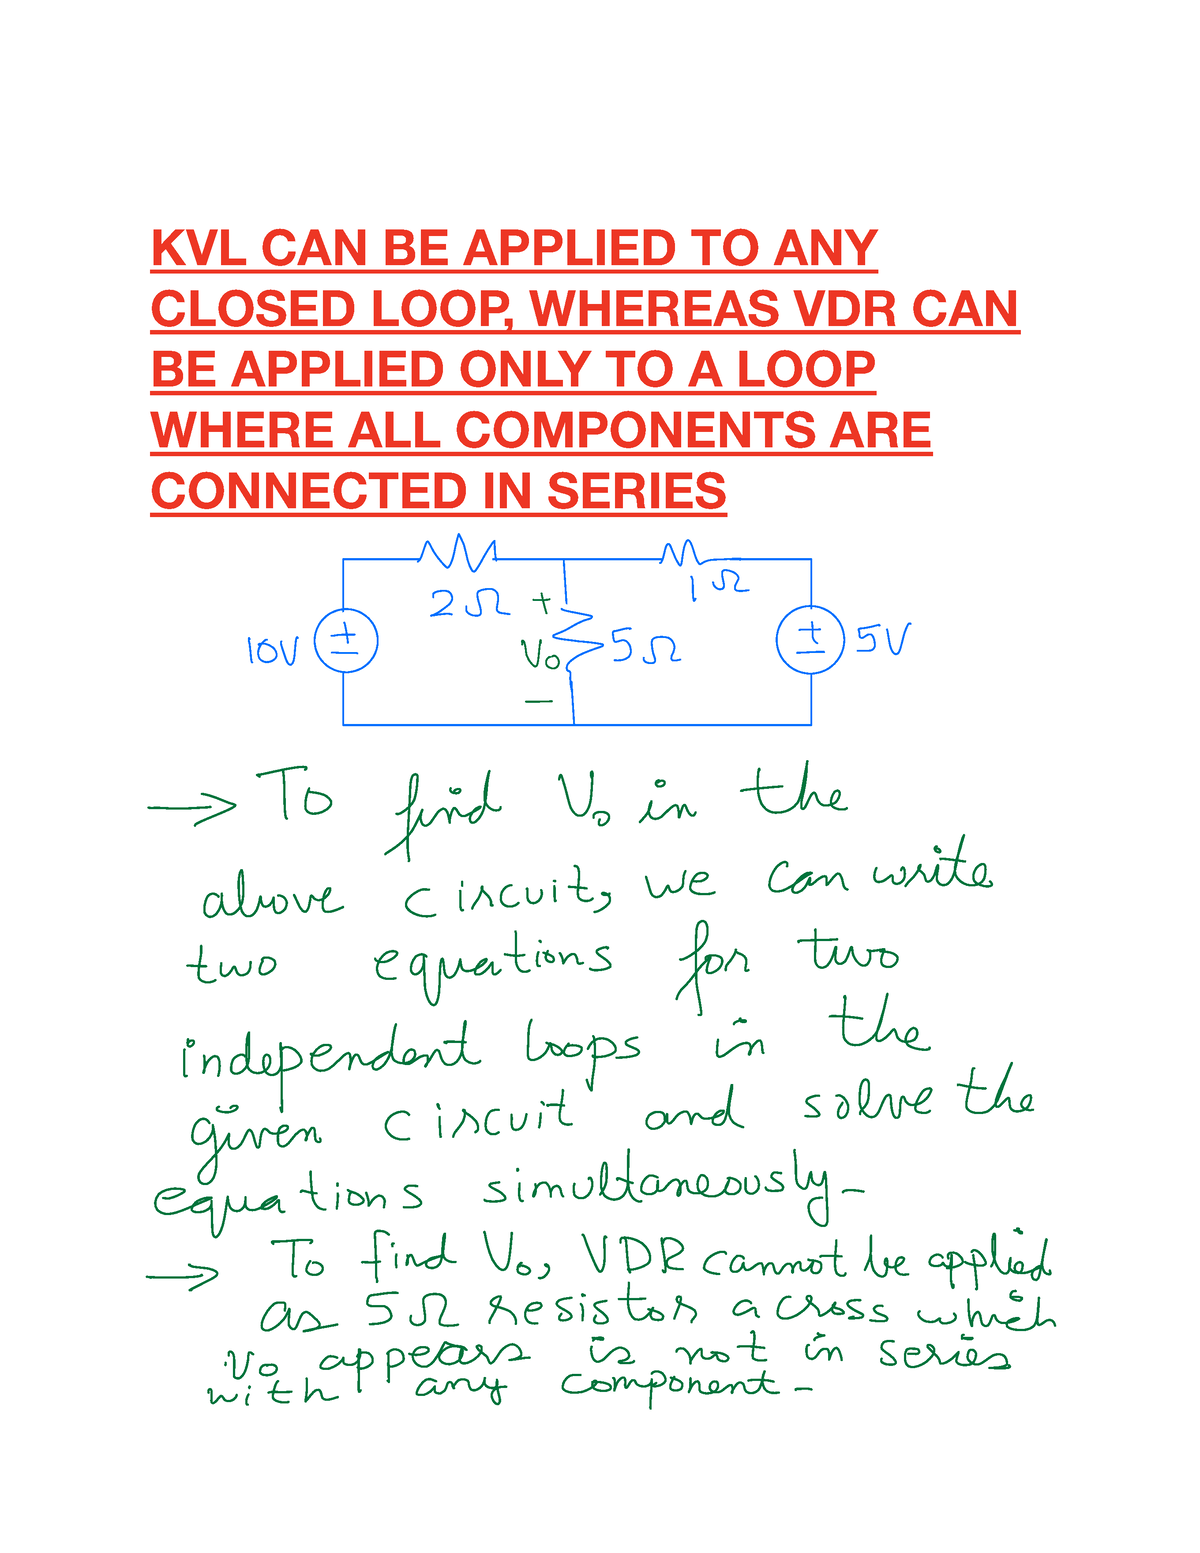 KVL CAN BE APPLIED TO ANY
CLOSED LOOP, WHEREAS VDR CAN
BE APPLIED ONLY TO A LOOP
WHERE ALL COMPONENTS ARE
CONNECTED IN SERIES
2Ω
1Ω
+
10V
+
−
Vo
5Ω
+
−
5V
−
→ To find Vo in the
above circuit, we can write
two equations for two
independent loops in the
given circuit and solve the
equations simultaneously-
→ To find Vo, VDR cannot be applied
as 5Ω resistor across which
Vo appears is not in series
with any component-